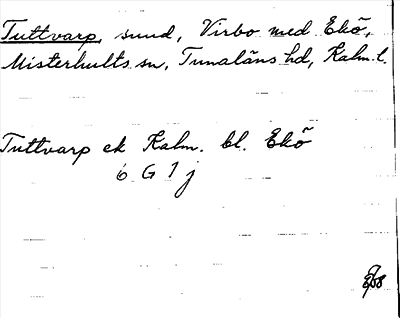 Tuttvarp, sund, Virbo med Ekö,
Misterhults sn, Tunaläns hd, Kalm. l.
Tuttvarp ek Kalm. bl. Ekö
6 G 1 j